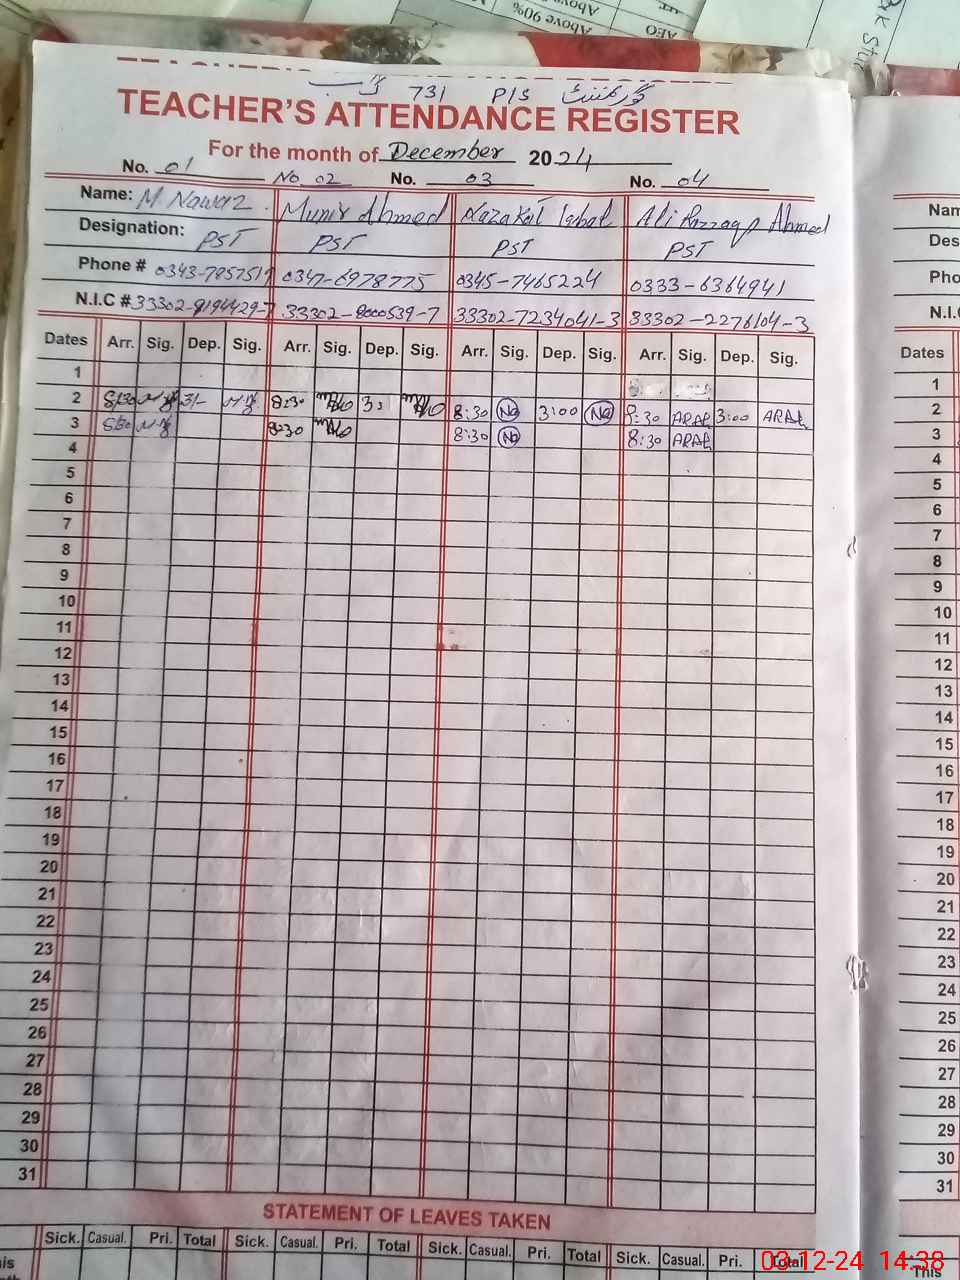 Above 90%
AEO
731 P/S گورنمنٹ
TEACHER'S ATTENDANCE REGISTER
For the month of December 2024
No. 01 No 02 No. 03 No. 04
Name: M Nawaz Munir Ahmed Nazakat Iqbal Ali Razzaq Ahmed
Designation: PST PST PST PST
Phone # 0343-7857517 0347-6978775 0345-7465224 0333-6364941
N.I.C # 33302-9194429-7 33302-8000539-7 33302-7234041-3 33302-2276104-3
Dates Arr. Sig. Dep. Sig. Arr. Sig. Dep. Sig. Arr. Sig. Dep. Sig. Arr. Sig. Dep. Sig.
1
2 8:30 3/- 8:30 3: 8:30 NA 3:00 NA 8:30 ARAh 3:00 ARAh
3 8:30 8:30 8:30 NA 8:30 ARAh
4
5
6
7
8
9
10
11
12
13
14
15
16
17
18
19
20
21
22
23
24
25
26
27
28
29
30
31
STATEMENT OF LEAVES TAKEN
Sick. Casual. Pri. Total Sick. Casual. Pri. Total Sick. Casual. Pri. Total Sick. Casual. Pri. Total
Dates
1
2
3
4
5
6
7
8
9
10
11
12
13
14
15
16
17
18
19
20
21
22
23
24
25
26
27
28
29
30
31
This
03-12-24 14:38